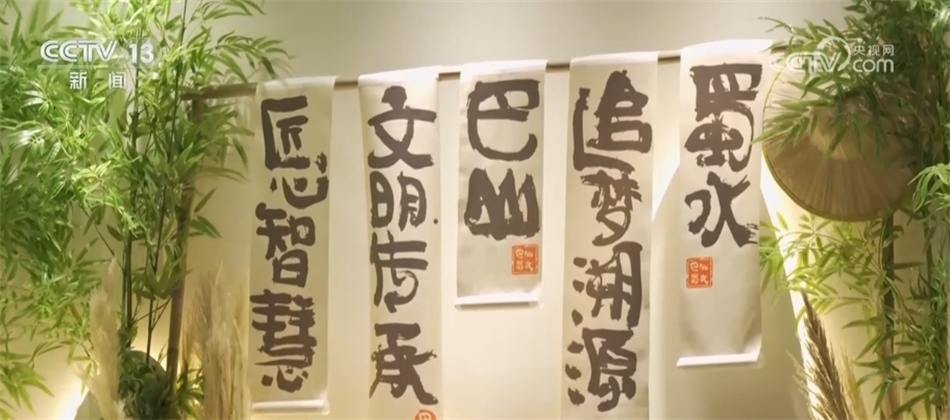 CCTV 13
新闻
央视网
CCTV.com
匠心智慧
文明传承
巴山
追梦溯源
蜀水